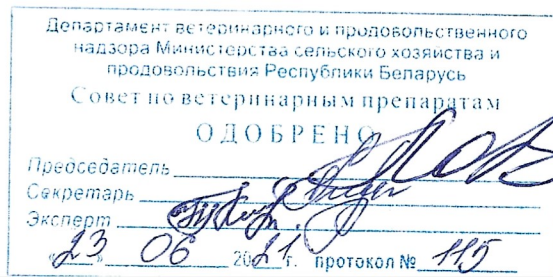 Департамент ветеринарного и продовольственного
надзора Министерства сельского хозяйства и
продовольствия Республики Беларусь
Совет по ветеринарным препаратам
ОДОБРЕНО
Председатель
Секретарь
Эксперт
«23» 06 2021г. протокол № 115